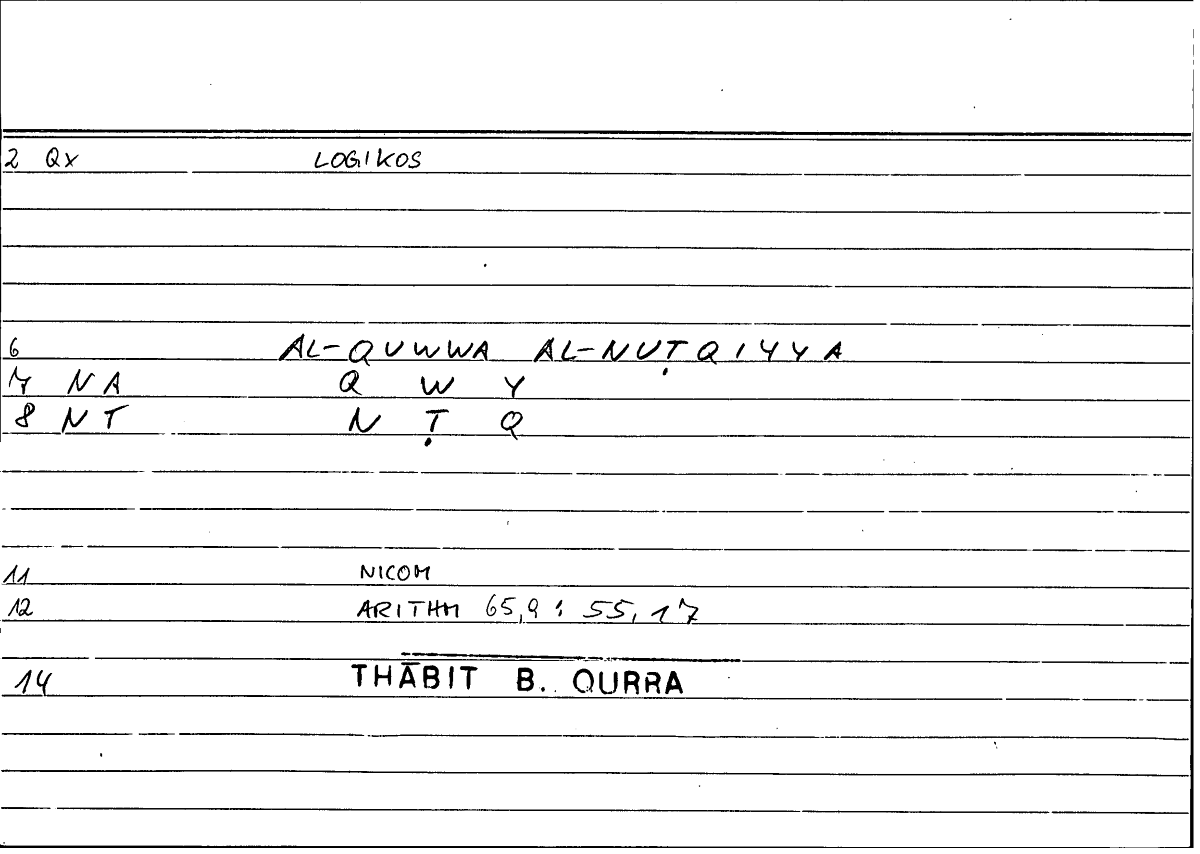 2 QX LOGIKOS
6 AL-QUWWA AL-NUṬQIYYA
7 NA Q W Y
8 NT N Ṭ Q
11 NICOM
12 ARITHM 65,9 : 55,17
14 THĀBIT B. QURRA